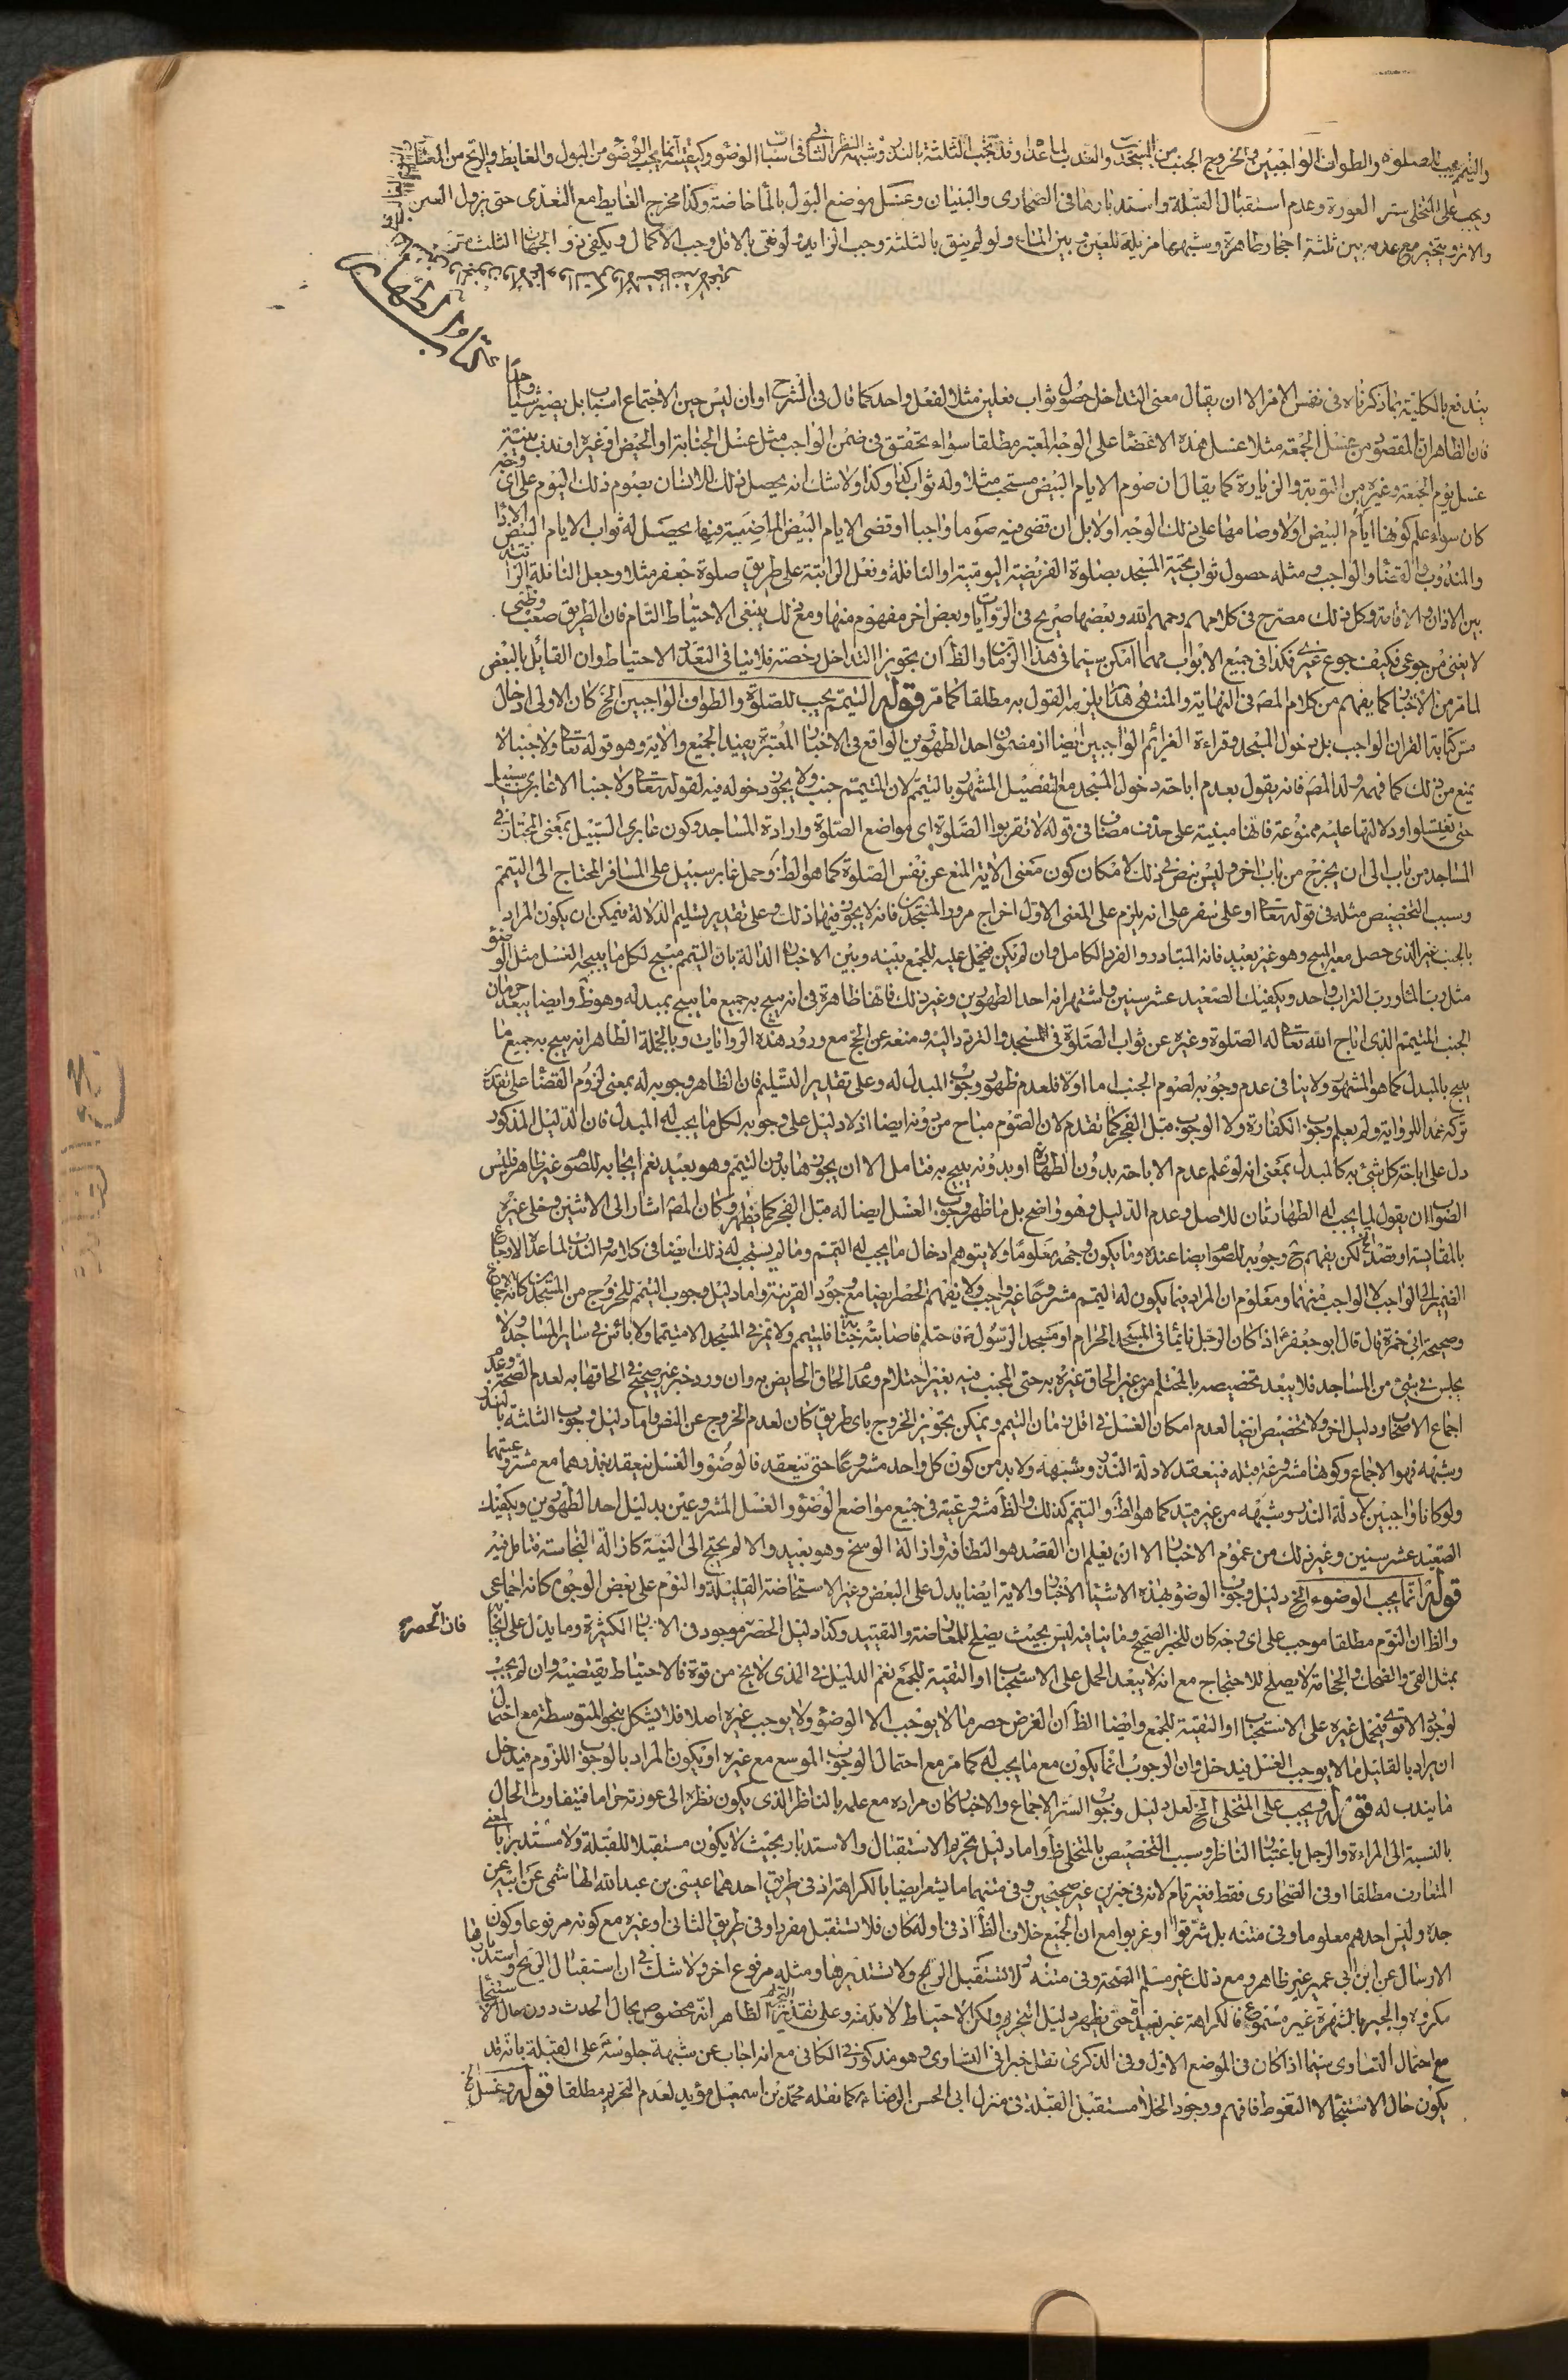 والتيمم يجب للصلوة والطواف الواجبين ولخروج الجنب من المسجدين والندب لما عداه وقد تجب الثلثة بالنذر وشبهه النظر الثاني في اسباب الوضوء وكيفيته انما يجب الوضوء من البول والغايط والريح من المعتاد
ويجب على المتخلى ستر العورة وعدم استقبال القبلة واستدبارها في الصحارى والبنيان وغسل موضع البول بالماء خاصة وكذا مخرج الغايط مع التعدى حتى يزول العين
والاثر ويتخير مع عدمه بين ثلثة احجار طاهرة وشبهها مزيلة للعين وبين الماء ولو لم ينق بالثلثة وجب الزايد ولو نقى بالاقل وجب الاكمال ويكفى ذو الجهات الثلث
كتاب الطهارة
يندفع بالكلية بما ذكرناه في نفس الامر الا ان يقال معنى التداخل حصول ثواب فعلين مثلا لفعل واحد كما قال في الشرح اوان ليس حين الاجتماع اسباب بل يصير سببا واحدا
فان الظاهر ان المقصود من غسل الجمعة مثلا غسل هذه الاعضاء على الوجه المعتبر مطلقا سواء تحقق في ضمن الواجب مثل غسل الجنابة او الحيض او غيره او ندب بنية
غسل يوم الجمعة وغيره من التوبة والزيارة كما يقال ان صوم الايام البيض مستحب مثلا وله ثواب كذا وكذا ولا شك انه يحصل ذلك للانسان بصوم ذلك اليوم على اى وجه
كان سواء علم كونها ايام البيض اولا وصامها على ذلك الوجه اولا بل ان قضى فيه صوما واجبا او قضى الايام البيض الماضية فيها يحصل له ثواب الايام البيض الاداء
والمندوب والقضاء والواجب ومثله حصول ثواب تحية المسجد بصلوة الفريضة اليومية او النافلة وفعل الراتبة على طريق صلوة جعفر مثلا وجعل النافلة الراتبة
بين الاذان والاقامة وكل ذلك مصرح في كلامهم رحمهم الله وبعضها صريح في الروايات وبعض اخر مفهوم منها ومع ذلك ينبغى الاحتياط التام فان الطريق صعب وظنى
لا يغنى من جوعى فكيف جوع غيرى فكذا في جميع الابواب مهما امكن سيما في هذا الزمان والظ ان تجويز التداخل رخصة فلا ينافى التعدد الاحتياط وان القايل بالبعض
لما مر من الاخبار كما يفهم من كلام المصَ في النهاية والمنتهى هذا يلزمه القول به مطلقا كما مر قوله التيمم يجب للصلوة والطواف الواجبين الخ كان الاولى ادخال
مس كتابة القران الواجب بل دخول المسجد وقراءة العزائم الواجبين ايضا اذ مضمون احد الطهورين الواقع في الاخبار المعتبرة يفيد الجميع والاية وهو قوله تعا ولا جنبا لا
يمنع من ذلك كما فهمه ولد المصَ فانه يقول بعدم اباحة دخول المسجد مع التفصيل المشهور بالتيمم لان المتيمم جنب ولا يجوز دخوله فيه لقوله تعا ولا جنبا الا عابرى سبيل
حتى تغتسلوا ودلالتها عليه ممنوعة فانها مبنية على حذف مضاف في قوله لا تقربوا الصلوة اى مواضع الصلوة وارادة المساجد وكون عابرى السبيل بمعنى المجتازين في
المساجد من باب الى ان يخرج من باب اخر وليس نص في ذلك لامكان كون معنى الاية المنع عن نفس الصلوة كما هو الظ وحمل عابر سبيل على المسافر المحتاج الى التيمم
وسبب التخصيص مثله في قوله تعا او على سفر على انه يلزم على المعنى الاول اخراج مرور المسجدين فانه لا يجوز فيهما ذلك وعلى تقدير تسليم الدلالة فيمكن ان يكون المراد
بالجنب غير الذى حصل معه المبيح وهو غير بعيد فانه المتبادر والفرد الكامل وان لم يكن فيحمل عليه للجمع بينه وبين الاخبار الدالة بان التيمم مبيح لكل ما يبيحه الغسل مثل الوضوء
مثل رب الماء ورب التراب واحد ويكفيك الصعيد عشر سنين واشتهر انه احد الطهورين وغير ذلك فانها ظاهرة في انه يبيح به جميع ما يبيح بمبدله وهو ظ وايضا يبعد حرمان
الجنب المتيمم الذى اباح الله تعا له الصلوة وغيره عن ثواب الصلوة في المسجد والتردد اليه ومنعه عن الحج مع ورود هذه الروايات وبالجملة الظاهر انه يبيح به جميع ما
يبيح بالمبدل كما هو المشهور ولا ينافى عدم وجوبه لصوم الجنب اما اولا فلعدم ظهور وجوب المبدل له وعلى تقدير التسليم فان الظاهر وجوبه له بمعنى لزوم القضاء على تقدير
تركه عمدا للرواية ولم يعلم وجوب الكفارة ولا الوجوب مثل الفجر كما تقدم لان الصوم مباح من دونه ايضا اذ لا دليل على وجوبه لكل ما يجب له المبدل فان الدليل المذكور
دل على اباحة كل شيء به كالمبدل بمعنى انه لو علم عدم الاباحة بدون الطهارة او بدونه يبيح به فتامل الا ان يجوز هنا بدون التيمم وهو بعيد نعم ايجابه للصوم غير ظاهر فليس
الصواب ان يقول لما يجب له الطهارتان للاصل وعدم الدليل وهو واضح بل ما ظهر وجوب الغسل ايضا له قبل الفجر كما يظهر وكان المصَ اشار الى الاثنين وخلى غيره
بالمقايسة او قصد لكن يفهم ح وجوبه للصوم ايضا عنده وما يكون وجهه معلوما ولا يتوهم ادخال ما يجب له التيمم وما لم يستحب له ذلك ايضا في كلامه والندب لما عداه لارجاع
الضمير الى الواجب لا الواجب منهما ومعلوم ان المراد فيما يكون له التيمم مشروعا غير واجب ولا يفهم الحصر ايضا مع وجود القرينة واما دليل وجوب التيمم للخروج من المسجدين كانه اجماع
وصحيحة ابى حمزة قال قال ابو جعفر ع اذا كان الرجل نائما في المسجد الحرام او مسجد الرسول ص فاحتلم فاصابته جنابة فليتيمم ولا تمر في المسجد الا متيمما ولا بأس في ساير المساجد ولا
يجلس في شيء من المساجد فلا يبعد تخصيصه بالمحتلم من غير الحاق غيره به حتى المجنب فيه بغير احتلام وعدم الحاق الحايض به وان ورد خبر غير صحيح في الحاقها به لعدم الصحة وعدم
اجماع الاصحاب ودليل اخر ولا تخصيص ايضا لعدم امكان الغسل في اقل زمان التيمم ويمكن تجويز الخروج باى طريق كان لعدم الخروج عن النص واما دليل وجوب الثلثة بالنذر
وشبهه فهو الاجماع وكونها مشروعة قبله فينعقد لادلة النذر وشبهه ولا بد من كون كل واحد مشروعا حتى ينعقد فالوضوء والغسل ينعقد نذرهما مع مشروعيتهما
ولو كانا واجبين لادلة النذر وشبهه من غير قيد كما هو الظ والتيمم كذلك والظ مشروعيته في جميع مواضع الوضوء والغسل المشروعين بدليل احد الطهورين ويكفيك
الصعيد عشر سنين وغير ذلك من عموم الاخبار الا ان يعلم ان القصد هو النظافة وازالة الوسخ وهو بعيد والا لم يحتج الى النية كازالة النجاسة فتامل فيه
قوله انما يجب الوضوء الخ دليل وجوب الوضوء بهذه الاشياء الاخبار والاية ايضا يدل على البعض وغير الاستحاضة القليلة والنوم على بعض الوجوه كانه اجماعى
والظ ان النوم مطلقا موجب على اى وجه كان للخبر الصحيح وما ينافيه ليس بحيث يصلح للمعارضة والتقييد وكذا دليل الحصر موجود في الاخبار الكثيرة وما يدل على ايجاب
فان الحصر
بمثل القيء والضحك والحجامة لا يصلح للاحتجاج مع انه لا يبعد الحمل على الاستحباب او التقية للجمع نعم الدليل في المذى لا يخ من قوة فالاحتياط يقتضيه وان لم يجب
لوجود الاقوى فيحمل غيره على الاستحباب او التقية للجمع وايضا الظ ان الغرض حصر ما لا يوجب الا الوضوء ولا يوجب غيره اصلا فلا يشكل بنحو المتوسطة مع احتمال
ان يراد بالقليل ما لا يوجب الغسل فيدخل وان الوجوب انما يكون مع ما يجب له كما مر مع احتمال الوجوب الموسع مع غيره او يكون المراد بالوجوب اللزوم فيدخل
ما يندب له قوله ويجب على المتخلى الخ لعل دليل وجوب الستر الاجماع والاخبار كان مراده مع علمه بالناظر الذى يكون نظره الى عورته حراما فيتفاوت الحال
بالنسبة الى المراءة والرجل باعتبار الناظر وسبب التخصيص بالمتخلى ظ واما دليل تحريم الاستقبال والاستدبار بحيث لا يكون مستقبلا للقبلة ولا مستدبرا بالمعنى
المتعارف مطلقا او في الصحارى فقط فغير تام لانه في خبرين غير صحيحين وفي متنهما ما يشعر ايضا بالكراهة اذ في طريق احدهما عيسى بن عبد الله الهاشمى عن ابيه عن
جده وليس احدهم معلوما وفي متنه بل شرقوا او غربوا مع ان الجميع خلاف الظ اذ في اوله كان فلا تستقبل مفردا وفي طريق الثانى او غيره مع كونه مرفوعا وكون
الارسال عن ابن ابى عمير غير ظاهر ومع ذلك غير مسلم الصحة وفي متنه لا تستقبل الريح ولا تستدبرها ومثله مرفوع اخر ولا شك في ان استقبال الريح واستدبارها
مكروه والجبر بالشهرة غير مسموع فالكراهة غير بعيدة حتى يظهر دليل التحريم ولكن الاحتياط لا بد منه وعلى تقدير التحريم الظاهر انه مخصوص بحال الحدث دون حال الاستنجاء
مع احتمال التساوى سيما اذا كان في الموضع الاول وفي الذكرى نقل خبرا في التساوى وهو مذكور في الكافى مع انه اجاب عن شبهة جلوسه على القبلة بانه قد
يكون حال الاستنجاء لا التغوط فافهم ووجود الخلاء مستقبل القبلة في منزل ابى الحسن الرضا ع كما نقله محمد بن اسمعيل مؤيد لعدم التحريم مطلقا قوله وغسل الخ